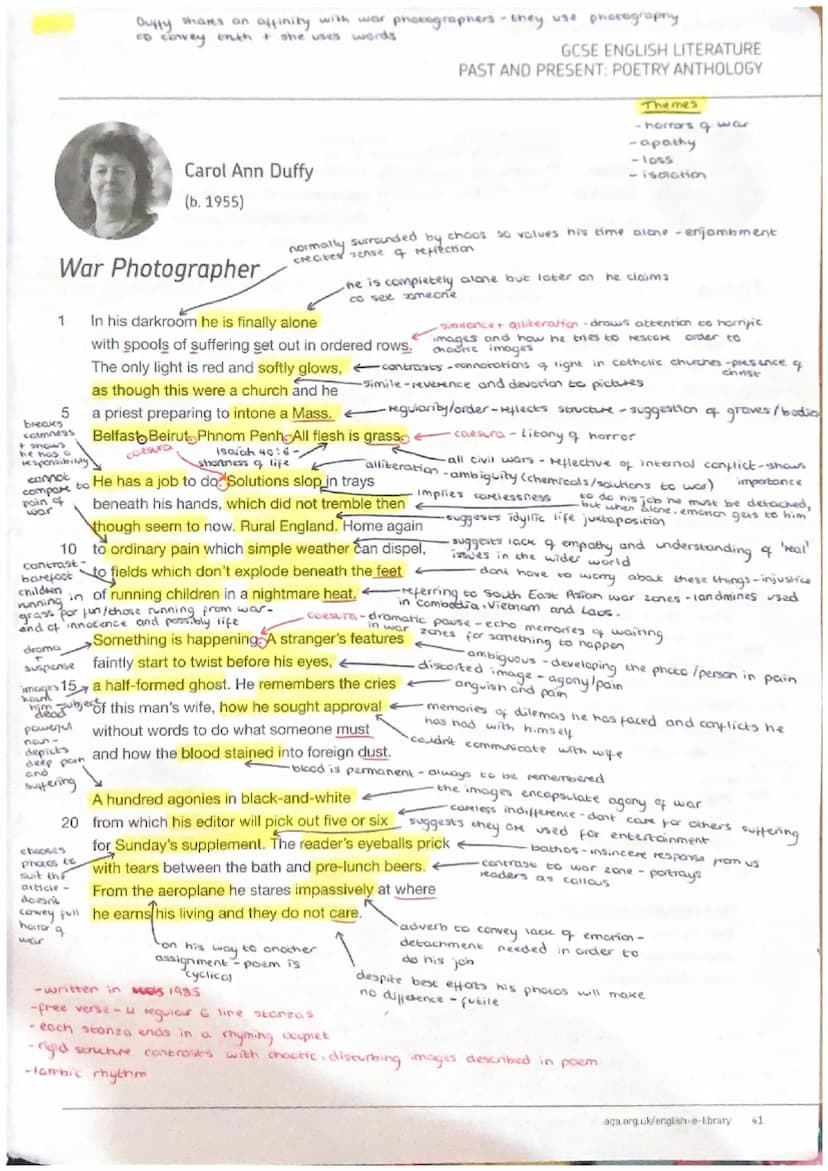 Duffy shares an affinity with war photographers - they use photography
to convey truth + she uses words
GCSE ENGLISH LITERATURE
PAST AND PRESENT: POETRY ANTHOLOGY
Themes
- horrors of war
- apathy
- loss
- isolation
Carol Ann Duffy
(b. 1955)
normally surrounded by chaos so values his time alone - enjambment
creates sense of reflection
War Photographer
he is completely alone but later on he claims
to see someone
1 In his darkroom he is finally alone
sibilance + alliteration - draws attention to horrific
images and how he tries to restore order to
chaotic images
with spools of suffering set out in ordered rows.
The only light is red and softly glows,
contrasts - connotations of light in catholic churches - presence of
christ
as though this were a church and he
simile - reverence and devotion to pictures
5 a priest preparing to intone a Mass.
regularity/order - reflects structure - suggestion of graves/bodies
breaks
calmness
+ shows
he has a
responsibility
Belfast. Beirut. Phnom Penh. All flesh is grass.
caesura - Litany of horror
caesura
Isaiah 40:6 -
shortness of life
all civil wars - reflective of internal conflict - shows
importance
alliteration - ambiguity (chemicals/solutions to war)
He has a job to do. Solutions slop in trays
cannot
compare to
pain of
war
implies carelessness
beneath his hands, which did not tremble then
to do his job he must be detached,
but when alone, emotion gets to him
though seem to now. Rural England. Home again
suggests idyllic life juxtaposition
10 to ordinary pain which simple weather can dispel,
suggests lack of empathy and understanding of 'real'
issues in the wider world
contrast -
barefoot
children
running in
grass for fun/those running from war -
end of innocence and possibly life
to fields which don't explode beneath the feet
dont have to worry about these things - injustice
of running children in a nightmare heat.
referring to South East Asian war zones - landmines used
in Cambodia, Vietnam and Laos.
caesura - dramatic pause - echo memories of waiting
in war zones for something to happen
drama
+
suspense
Something is happening. A stranger's features
ambiguous - developing the photo/person in pain
faintly start to twist before his eyes,
distorted image - agony/pain
images
haunt
him - subject
dead
15 a half-formed ghost. He remembers the cries
anguish and pain
of this man's wife, how he sought approval
memories of dilemas he has faced and conflicts he
has had with himself
without words to do what someone must
couldn't communicate with wife
powerful
noun -
depicts
deep pain
and
suffering
and how the blood stained into foreign dust.
blood is permanent - always to be remembered
A hundred agonies in black-and-white
the images encapsulate agony of war
20 from which his editor will pick out five or six
careless indifference - dont care for others suffering
suggests they are used for entertainment
for Sunday's supplement. The reader's eyeballs prick
bathos - insincere response from us
chooses
photos to
suit the
article -
doesn't
convey full
horror of
war
with tears between the bath and pre-lunch beers.
contrast to war zone - portrays
readers as callous
From the aeroplane he stares impassively at where
he earns his living and they do not care.
on his way to another
assignment - poem is
cyclical
adverb to convey lack of emotion -
detachment needed in order to
do his job
despite best efforts his photos will make
no difference - futile
- written in 1985
- free verse - 4 regular 6 line stanzas
- each stanza ends in a rhyming couplet
- rigid structure contrasts with chaotic, disturbing images described in poem
- Iambic rhythm
aqa.org.uk/english-e-library 41